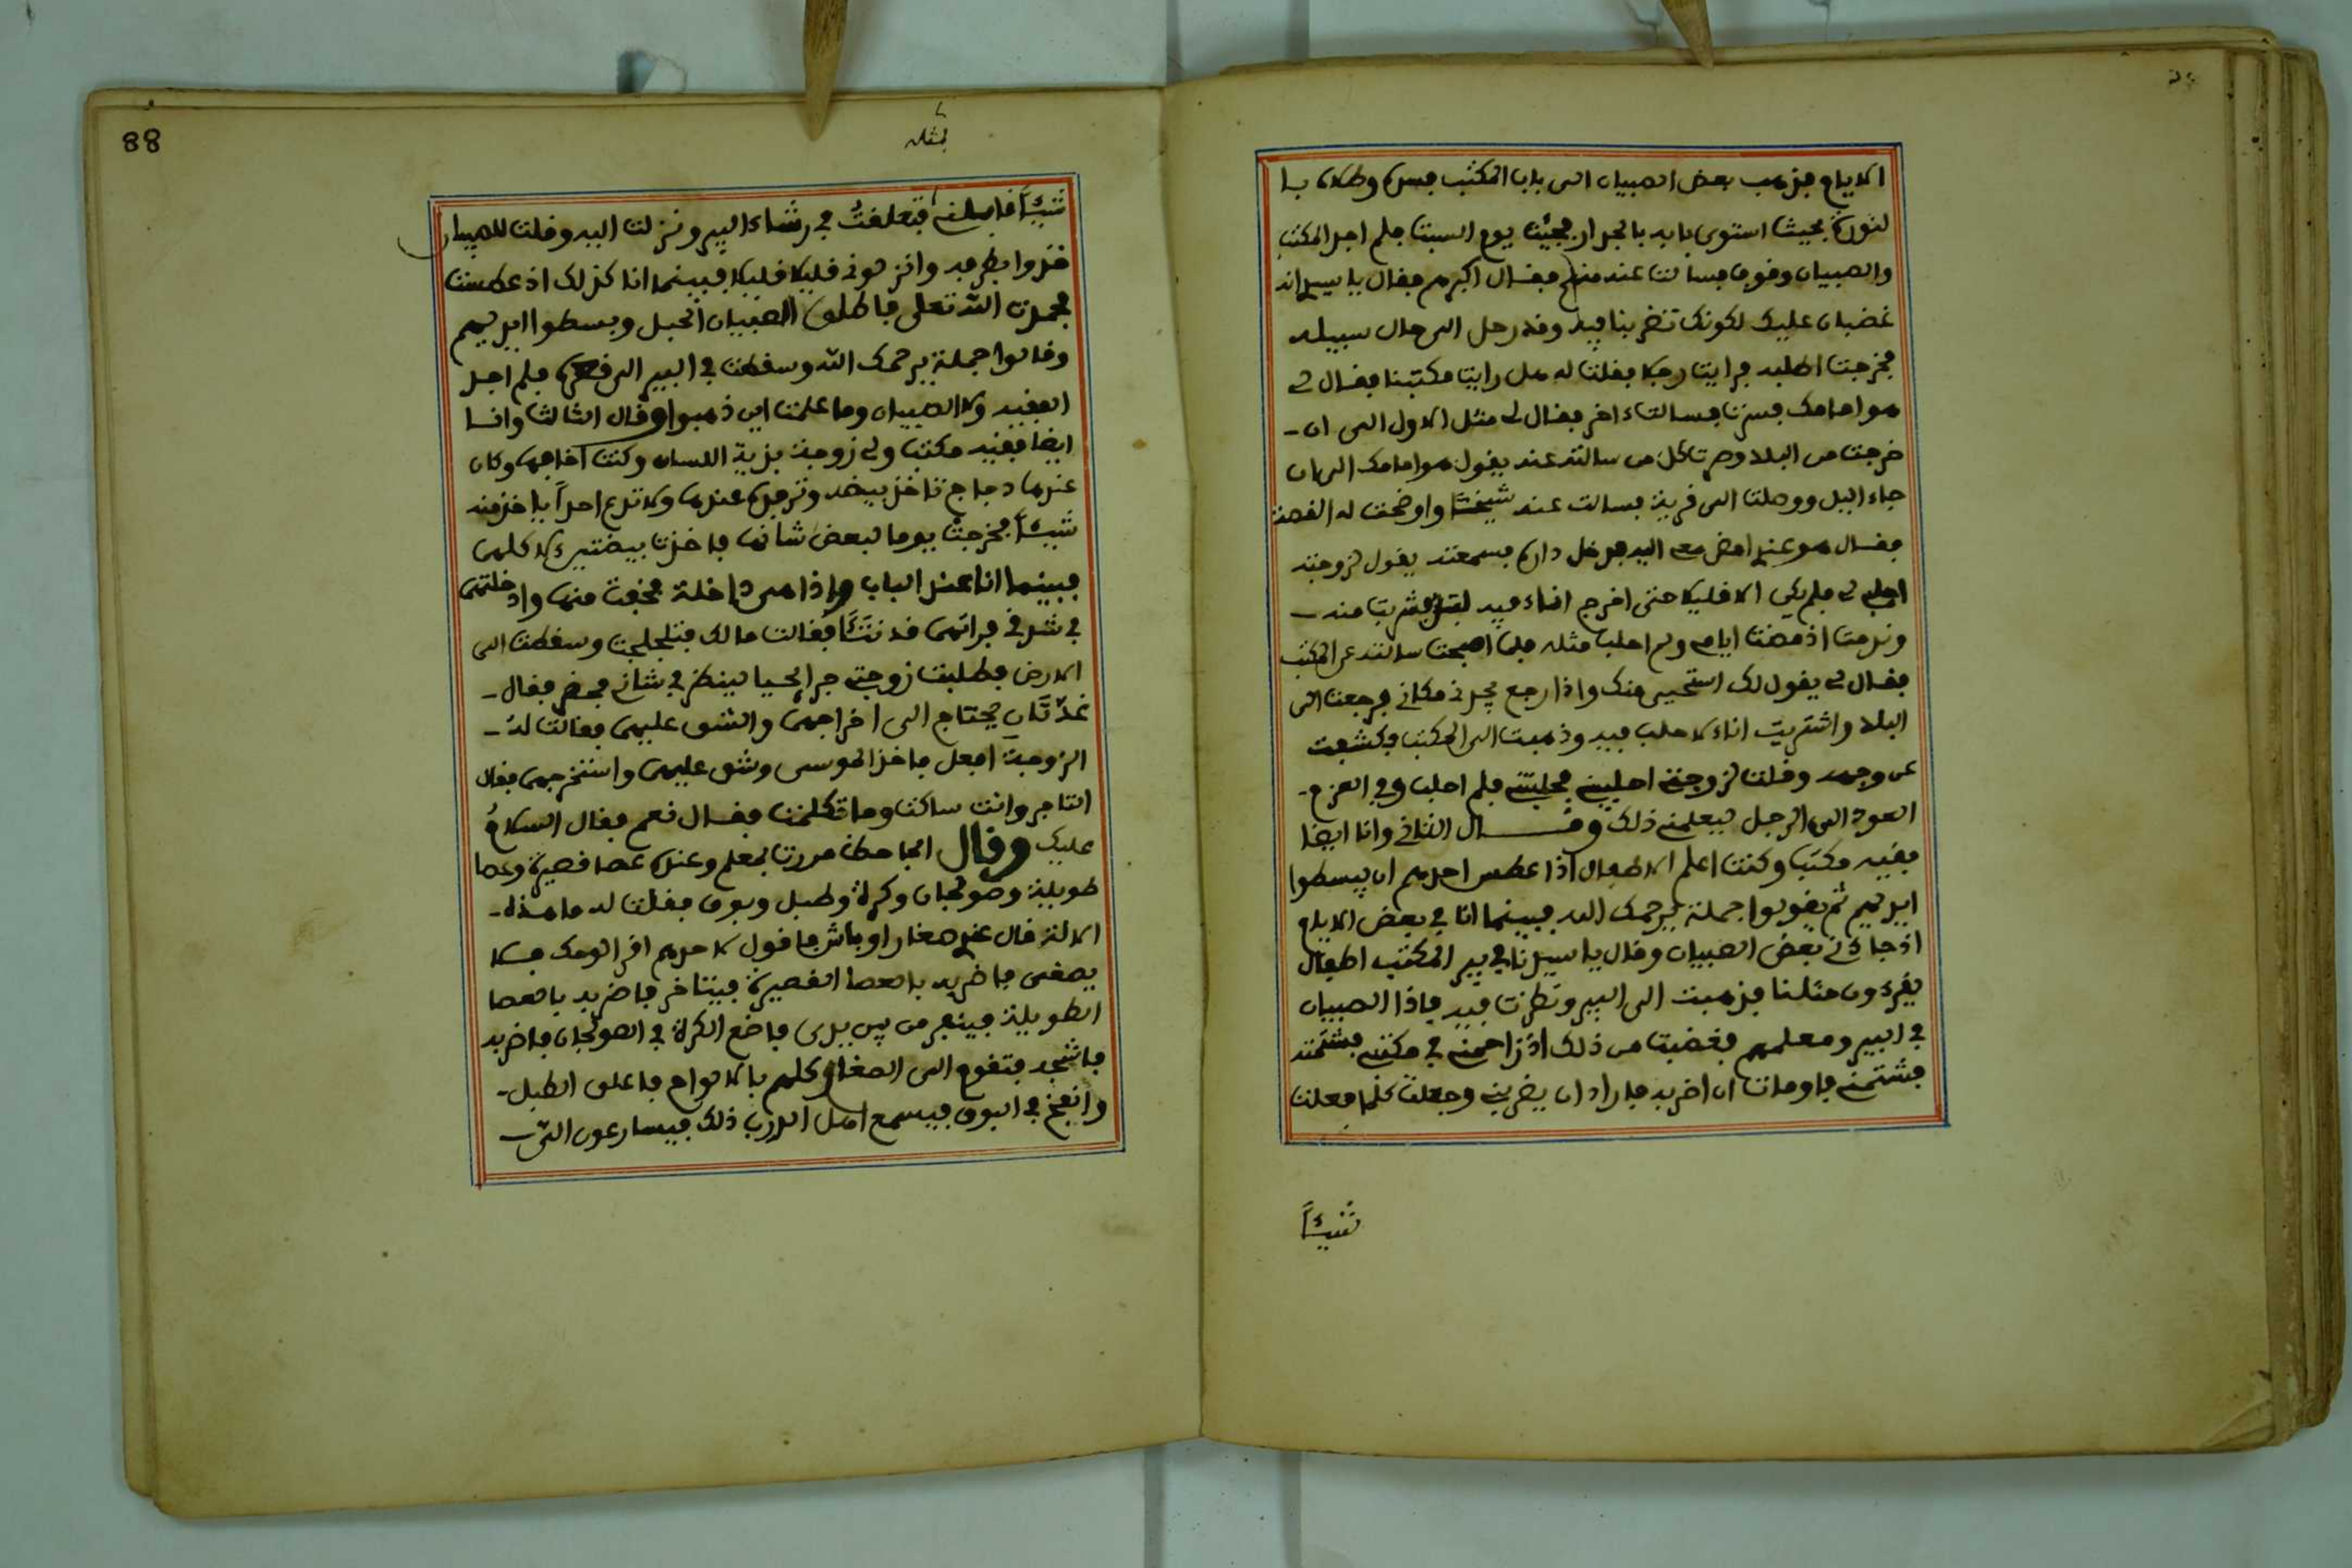 الايام فذهب بعض الصبيان الى باب المكتب فسده وطلاه با
لنورة بحيث استوى بابه بالجدار فجئت يوم السبت فلم اجد المكتب
والصبيان وقوف فسالت عنه منهم فقال اكبرهم فقال يا سيدي انه
غضبان عليك لكونك تضربنا فيه وقد رحل الى حال سبيله
فخرجت اطلبه فرايت رجلا فقلت له هل رايت مكتبنا فقال لي
هو امامك فسرت فسالت اخر فقال لي مثل الاول الى ان
خرجت من البلد وصرت كل من سالته عنه يقول هو امامك الى ان
جاء اليل ووصلت الى قرية فسالت عنه شيخا واوضحت له القصة
فقال هو عندي امض معي اليه فدخل داره فسمعته يقول لزوجته
احلبي لي فلم يكن الا قليلا حتى اخرج اناء فيه لبن فشربت منه
وندمت اذ مضت ايام ولم احلب مثله فلما اصبحت سالته عن المكتب
فقال لي يقول لك استحيى منك واذا رجع يجدني مكاني فرجعت الى
البلد واشتريت اناء لاحلب فيه وذهبت الى المكتب فكشفت
عن وجهه وقلت لزوجتي احلبيني فحلبتني فلم احلب وفي العزم
العود الى الرجل ليعلمني ذلك وقال الثاني وانا ايضا
فقيه مكتب وكنت اعلم الاطفال اذا عطس احدهم ان يبسطوا
ايديهم ثم يقولوا جملة يرحمك الله فبينما انا في بعض الايام
اذ جاءني بعض الصبيان وقال يا سيدنا في بير المكتب اطفال
يقرءون مثلنا فذهبت الى البير ونظرت فيه فاذا الصبيان
في البير ومعلمهم فغضبت من ذلك اذ زاحمني في مكتبي فشتمته
فشتمني فاومات ان اضربه فاراد ان يضربني وجعلت كلما فعلت
شيئا
88
بمثله
شيئا قابلني فتعلقت في رشاء البير ونزلت اليه وقلت للصبيان
خذوا بطرفه وانزلوني قليلا قليلا فبينما انا كذلك اذ عطست
فحمدت الله تعلى فاطلق الصبيان الحبل وبسطوا ايديهم
وقالوا جملة يرحمك الله وسقطت في البير الى قعره فلم اجد
الفقيه ولا الصبيان وما علمت اين ذهبوا وقال الثالث وانا
ايضا فقيه مكتب ولي زوجة بذية اللسان وكنت اخافها وكان
عندها دجاج تاخذ بيضه وترفعه عندها ولا تدع احدا ياخذ منه
شيئا فخرجت يوما لبعض شانها فاخذت بيضتين لاكلهما
فبينما انا عند الباب واذا هي داخلة فخفت منها وادخلتهما
في شدقي فراتهما قد نتئا فقالت مالك فتلجلجت وسقطت الى
الارض فطلبت زوجتي جرايحيا لينظر في شاني فحضر فقال
غدتان يحتاج الى اخراجهما والشق عليهما فقالت له
الزوجة افعل فاخذ الموسى وشق عليهما واستخرجهما فقال
التاجر وانت ساكت وما تكلمت فقال نعم فقال السلام
عليك وقال الجاحظ مررت بمعلم وعنده عصا قصيرة وعصا
طويلة وصولجان وكرة وطبل وبوق فقلت له ما هذه
الالة قال عندي صغار اوباش فاقول لاحدهم اقرا لوحك فلا
يصغى فاضربه بالعصا القصيرة فيتاخر فاضربه بالعصا
الطويلة فيفر من بين يدي فاضع الكرة في الصولجان فاضربه
فاشجه فتقوم الى الصغار كلهم بالالواح فاعلق الطبل
وانفخ في البوق فيسمع اهل الدرب ذلك فيسارعون الى